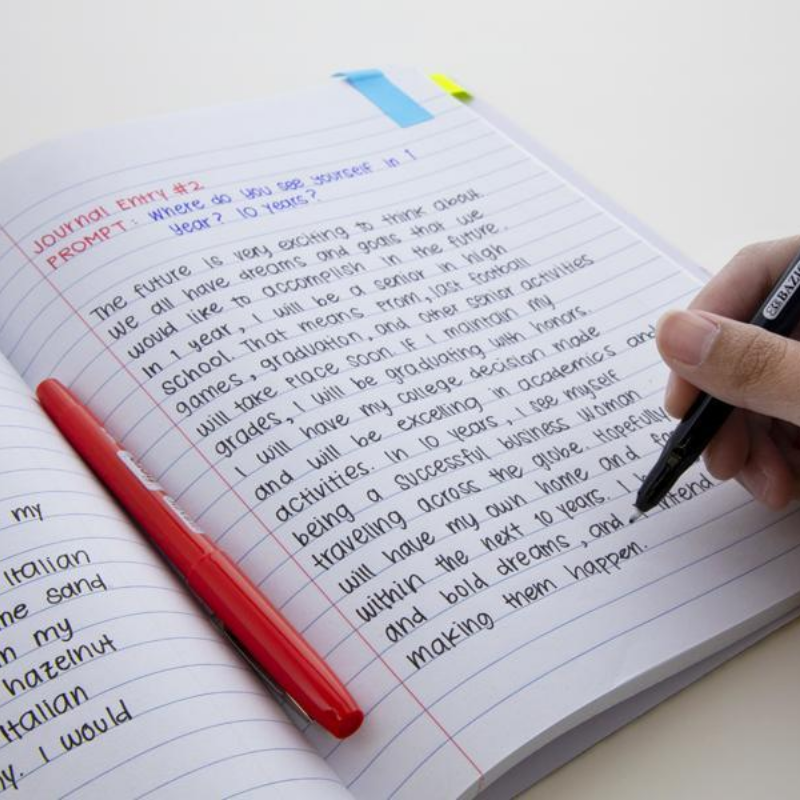 my
Italian
me sand
my
hazelnut
Italian
I would
Journal Entry #2
PROMPT: Where do you see yourself in 1
year? 10 years?
The future is very exciting to think about
we all have dreams and goals that we
would like to accomplish in the future.
In 1 year, I will be a senior in high
school. That means prom, last football
games, graduation, and other senior activities
will take place soon. If I maintain my
grades, I will be graduating with honors.
I will have my college decision made
and will be excelling in academics and
activities. In 10 years, I see myself
being a successful business woman
traveling across the globe. Hopefully
will have my own home and
within the next 10 years. I
and bold dreams, and I intend
making them happen.
BAZI